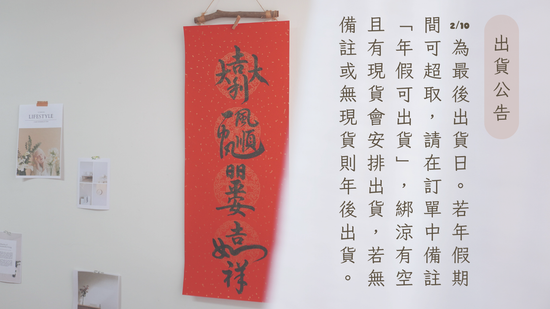 出貨公告
2/10為最後出貨日。若年假期
間可超取，請在訂單中備註
「年假可出貨」，綁涼有空
且有現貨會安排出貨，若無
備註或無現貨則年後出貨。
LIFESTYLE
吉祥